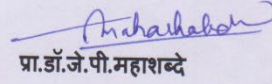 प्रा.डॉ.जे.पी.महाशब्दे